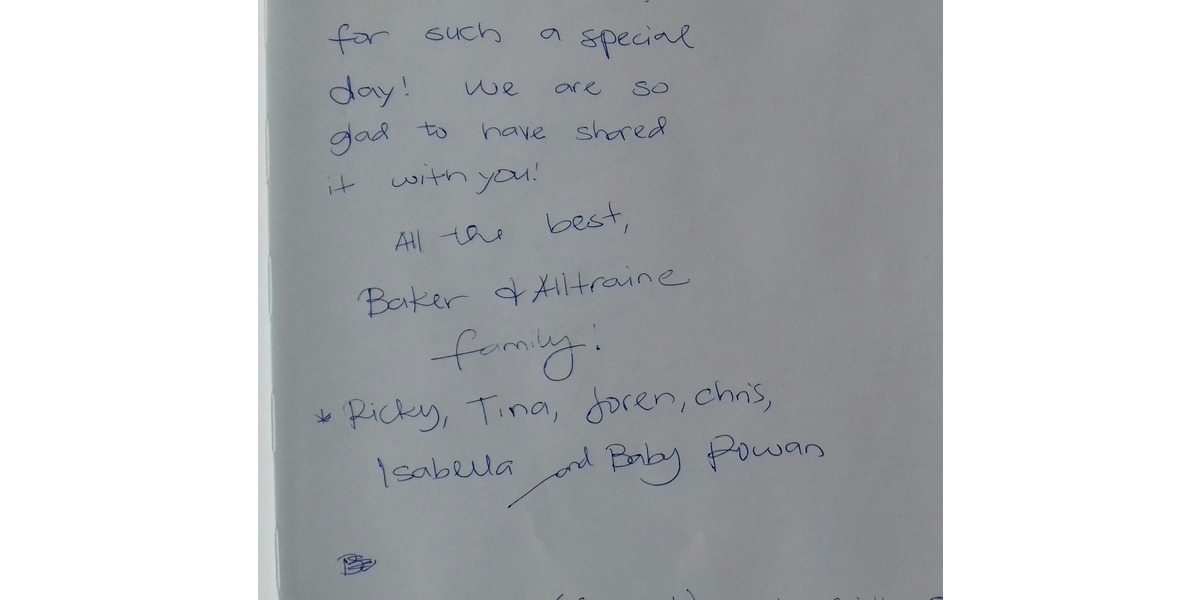 for such a special
day! We are so
glad to have shared
it with you!
All the best,
Baker & Alltraine
family!
* Ricky, Tina, Joren, Chris,
Isabella and Baby Rowan